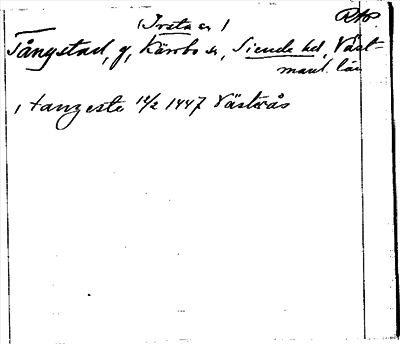 (Irsta sn) RAP.
Tångstad, g, Kärrbo sn, Siende hd, Väst-
manl. län
, tangeste 12/2 1447 Västerås